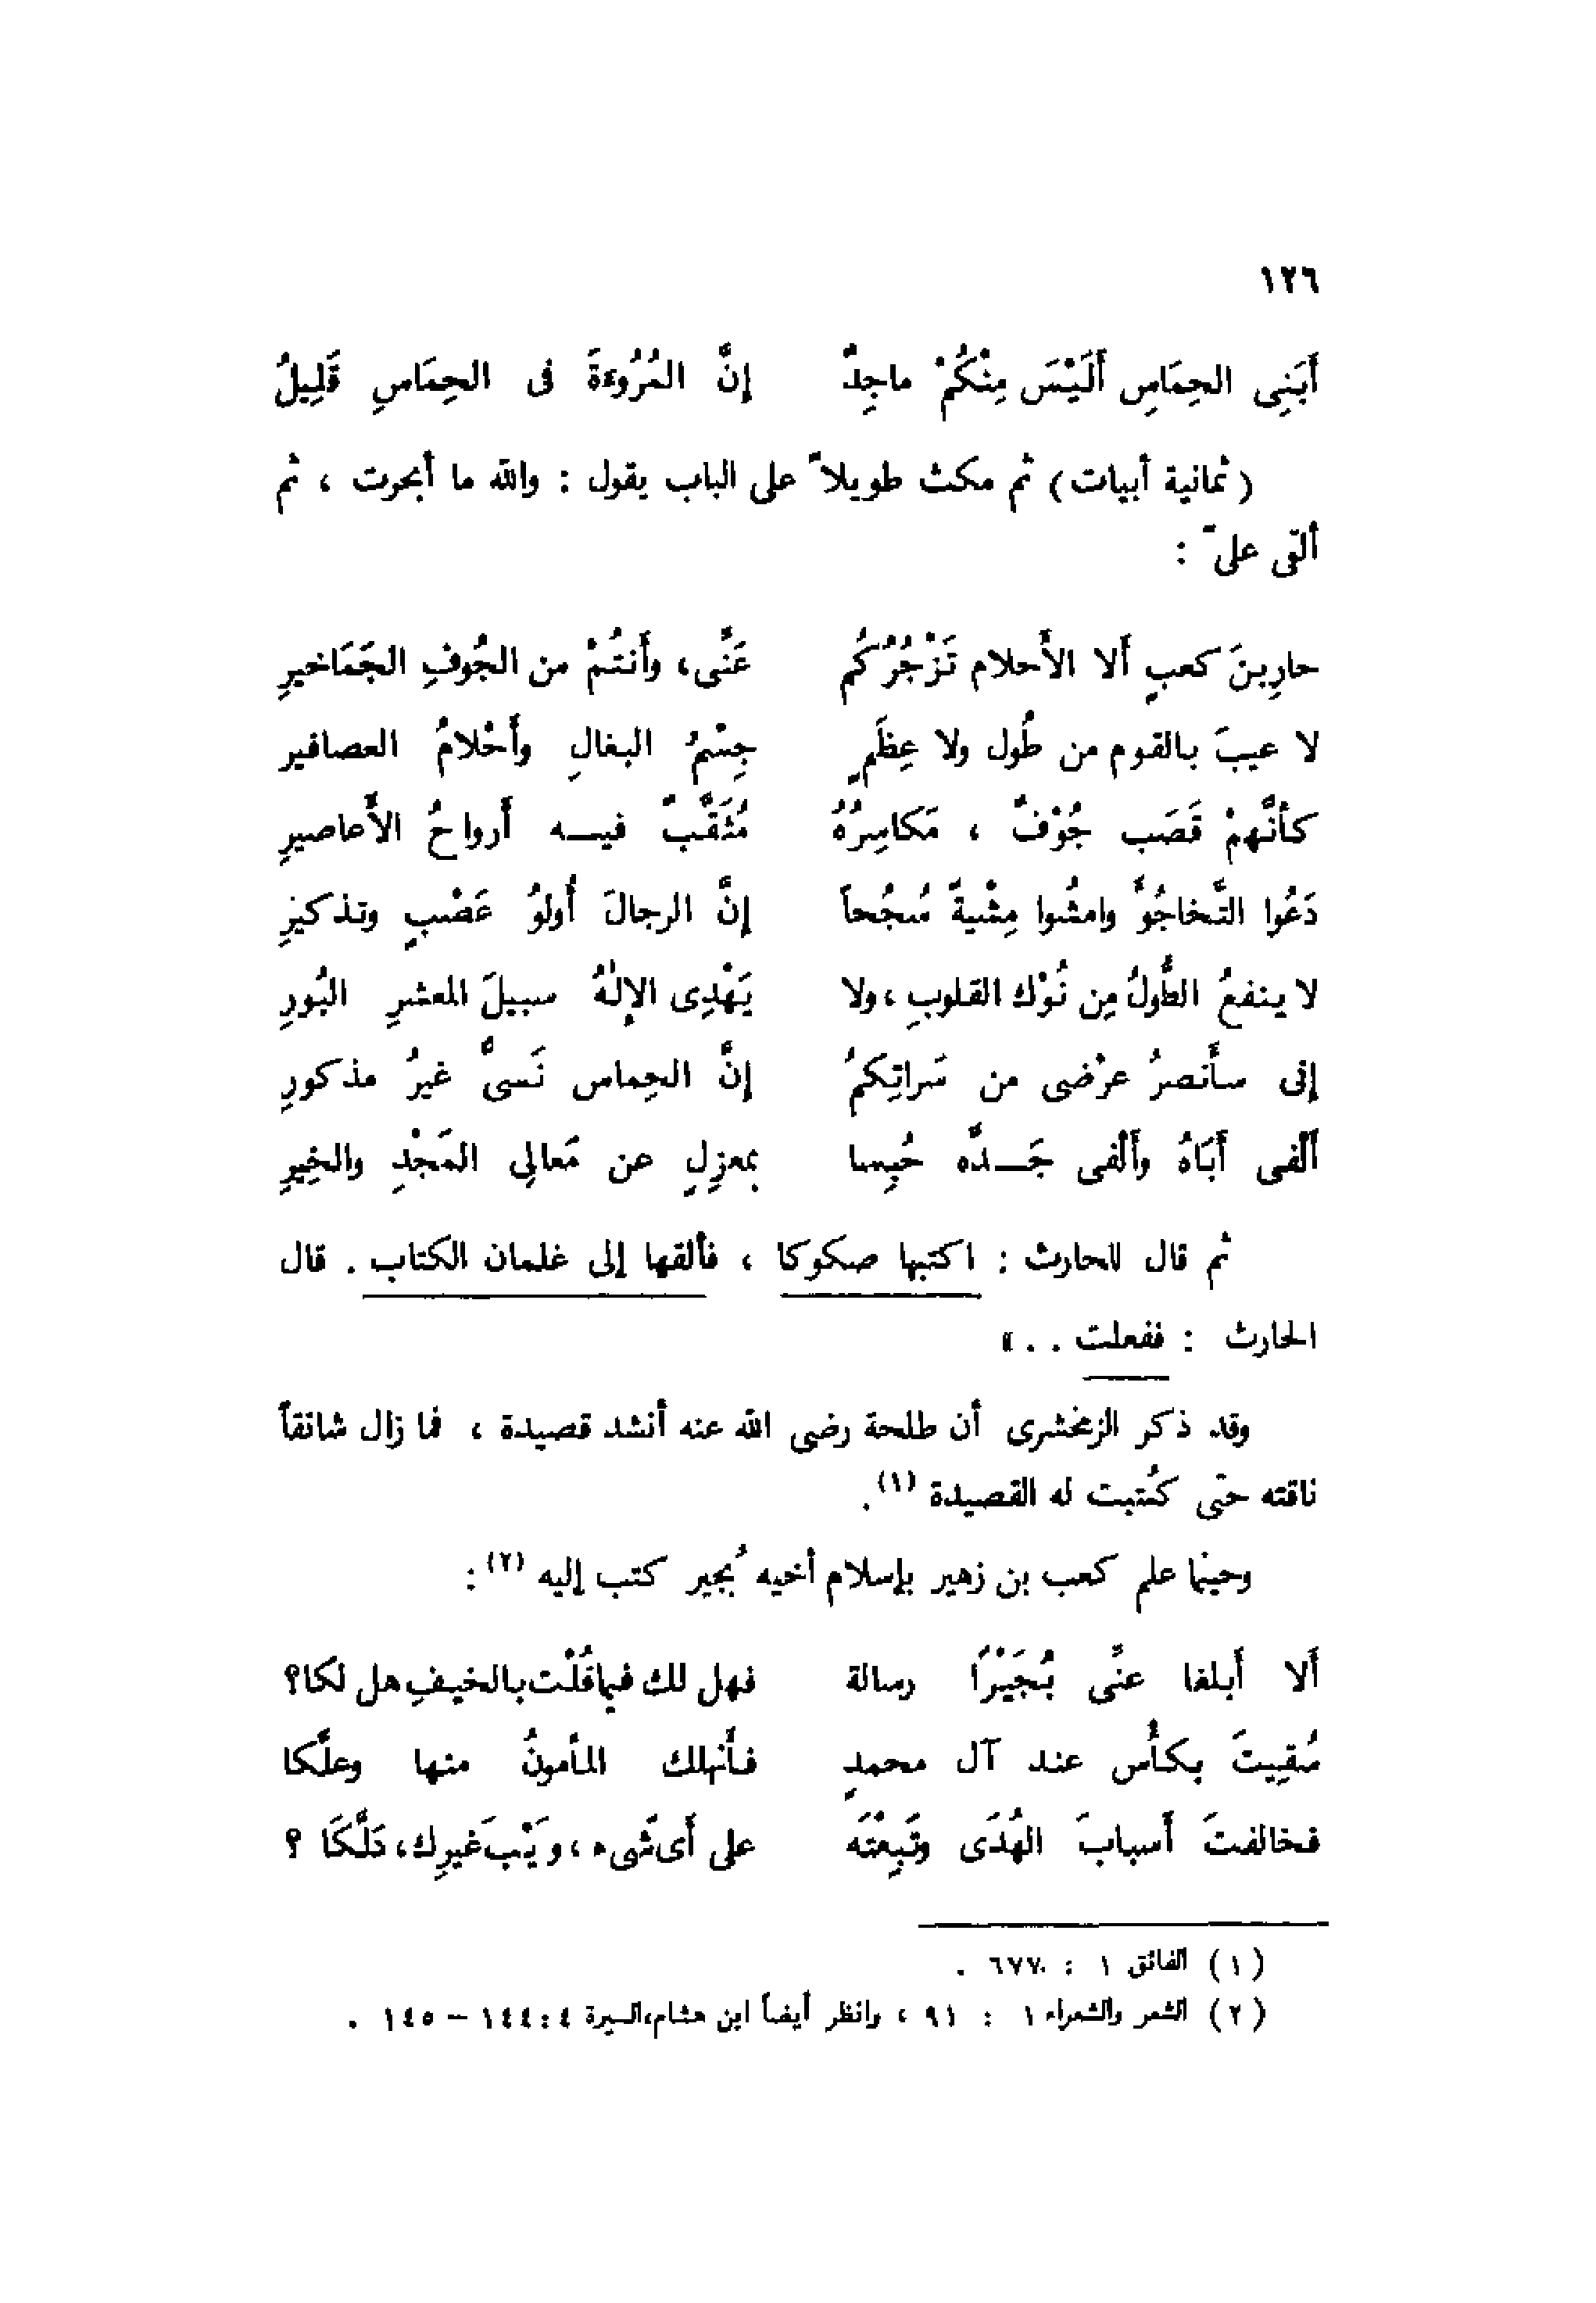 ١٢٦
أَبَنِى الحِمَاسِ أَلَيْسَ مِنْكُمْ ماجِدٌ إنَّ المُرُوءةَ فى الحِمَاسِ قَلِيلُ
( ثمانية أبيات ) ثم مكث طويلاً على الباب يقول : والله ما أبحرت ، ثم
ألقى علىّ :
حارِبنَ كعبٍ ألا الأحلام تَزْجُرُكُم عَنِّى، وأَنتُمْ من الجُوفِ الجَمَاخيرِ
لا عيبَ بالقوم من طُول ولا عِظَمٍ جِسْمُ البغالِ وأَحْلامُ العصافير
كأنَّهمْ قَصَب جُوْفٌ ، مَكاسِرُهُ مُثَقَّبٌ فيه أَرواحُ الأَعاصيرِ
دَعُوا التَّخاجُؤَ وامشُوا مِشْيةً سُجُحاً إنَّ الرجالَ أُولوُ عَصْبٍ وتذكيرِ
لا ينفعُ الطُّولُ مِن نُوْك القلوبِ ، ولا يَهْدِى الإلهُ سبيلَ المعشرِ البُورِ
إنى سأَنصرُ عرْضى من سَراتِكمُ إنَّ الحِماس نَسىٌّ غيرُ مذكورِ
أَلْفى أَبَاهُ وأَلفى جَدَّه حُبِسا بمعزِلٍ عن مَعالِى المَجْدِ والخِيرِ
ثم قال للحارث : اكتبها صكوكا ، فألقها إلى غلمان الكتاب . قال
الحارث : ففعلت . . »
وقد ذكر الزمخشرى أن طلحة رضى الله عنه أنشد قصيدة ، فما زال شانقاً
ناقته حتى كُتبت له القصيدة (١) .
وحينما علم كعب بن زهير بإسلام أخيه بُجير كتب إليه (٢) :
ألا أبلغا عنِّى بُجَيْرًا رسالة فهل لك فيما قُلْت بالخيفِ هل لكا؟
سُقِيتَ بكأْس عند آل محمدٍ فأَنهلك المأمونُ منها وعلَّكا
فخالفتَ أسبابَ الهُدَى وتَبِعْتَه على أى شىء ، وَيْبَ غيرِك، دَلَّكَا ؟
( ١ ) الفائق ١ : ٦٧٧ .
( ٢ ) الشعر والشعراء ١ : ٩١ ، وانظر أيضاً ابن هشام،السيرة ٤ : ١٤٤ – ١٤٥ .